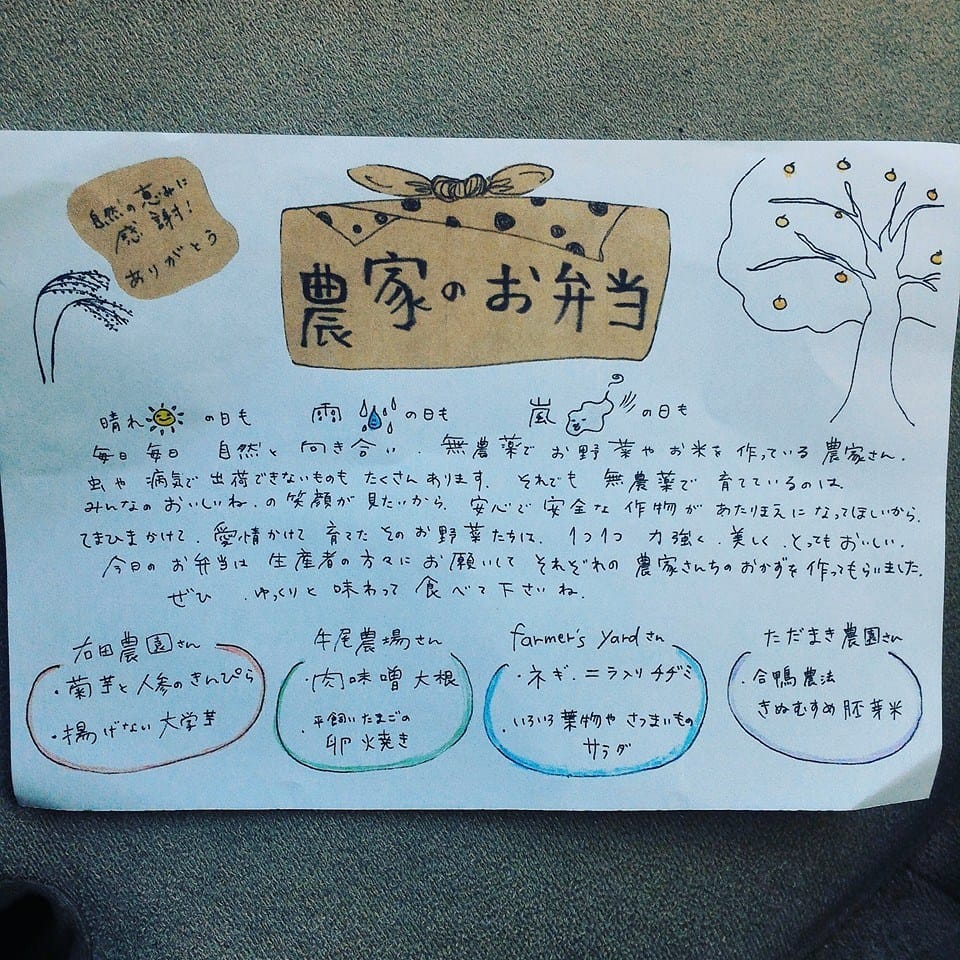 自然の恵みに
感謝!
ありがとう
農家のお弁当
晴れ の日も 雨 の日も 嵐 の日も
毎日毎日 自然と向き合い、無農薬でお野菜やお米を作っている農家さん。
虫や病気で出荷できないものもたくさんあります。それでも無農薬で育てているのは
みんなのおいしいね。の笑顔が見たいから。安心で安全な作物があたりまえになってほしいから。
てまひまかけて、愛情かけて育てたそのお野菜たちは、1つ1つ力強く、美しく、とってもおいしい。
今日のお弁当は生産者の方々にお願いしてそれぞれの農家さんちのおかずを作ってもらいました。
ぜひ、ゆっくりと味わって食べて下さいね。
右田農園さん
・菊芋と人参のきんぴら
・揚げない大学芋
牛尾農場さん
・肉味噌大根
・平飼いたまごの
卵焼き
farmer's yardさん
・ネギ、ニラ入りチヂミ
・いろいろ葉物やさつまいもの
サラダ
ただまき農園さん
・合鴨農法
きぬむすめ胚芽米